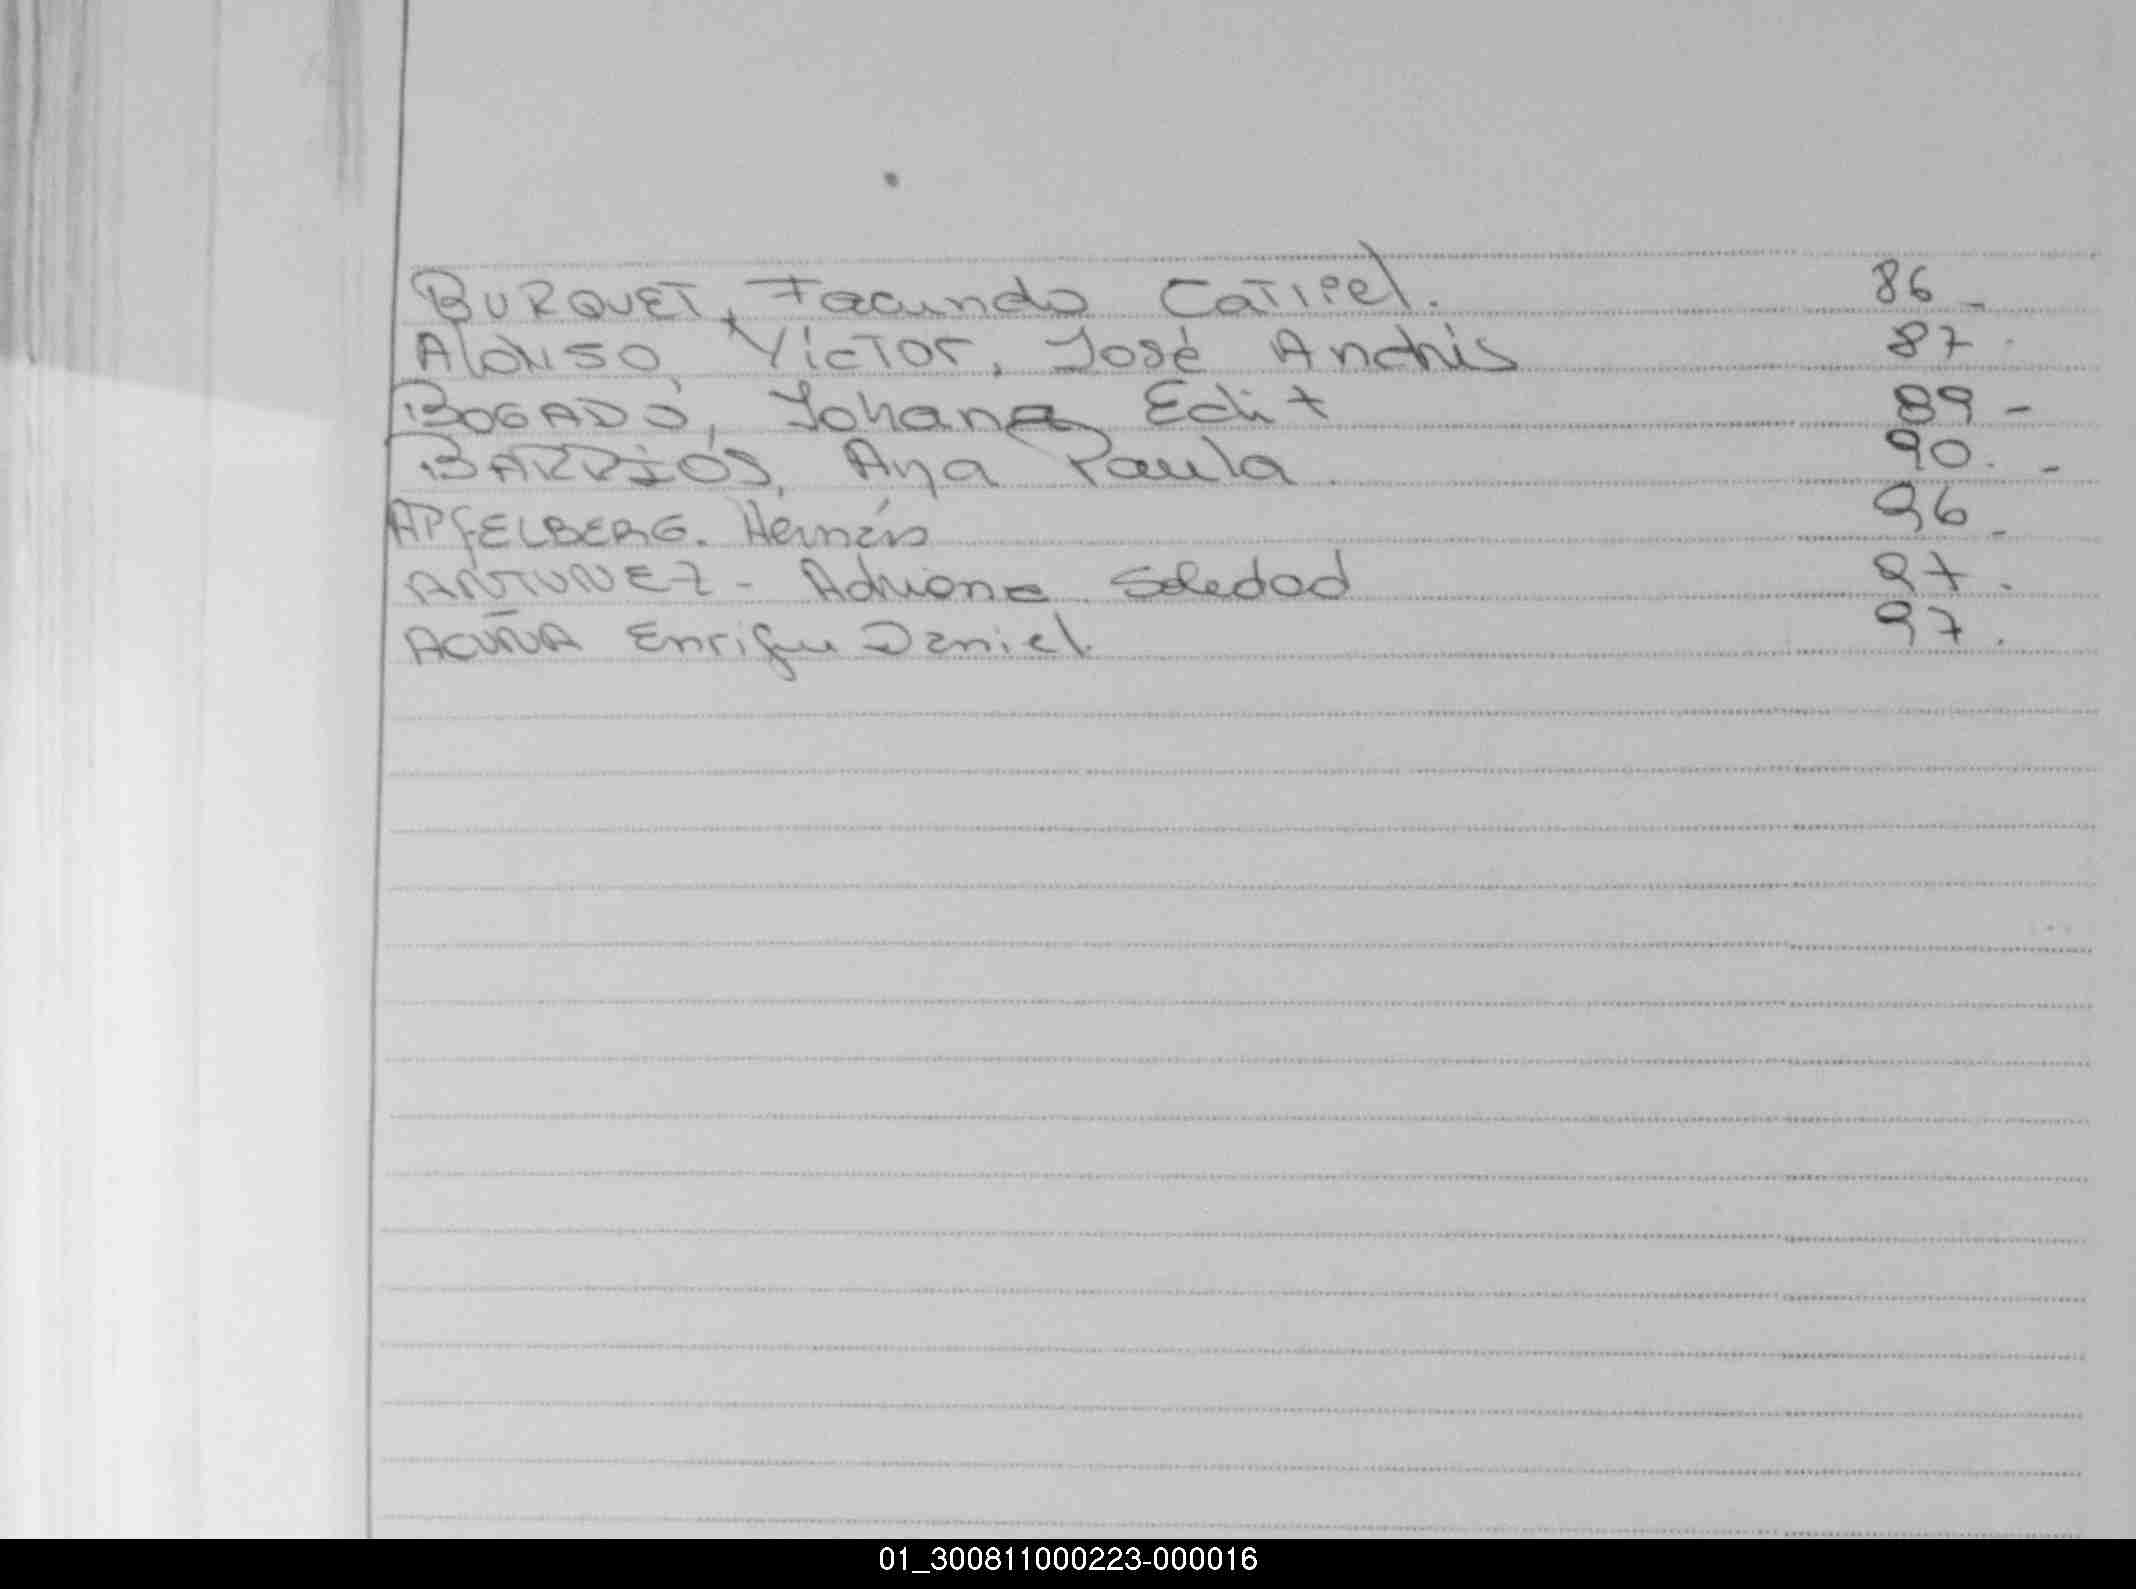 BURQUET, Facundo Catriel. 86 -
Alonso, Victor, José Andrés 87.
BOGADO, Yohana Edit 89 -
BARRIOS, Aya Paula. 90. -
APFELBERG. Hernán 96 -
ANTUNEZ - Adriana Soledad 97.
ACUÑA Enrique Daniel. 97.
01_300811000223-000016